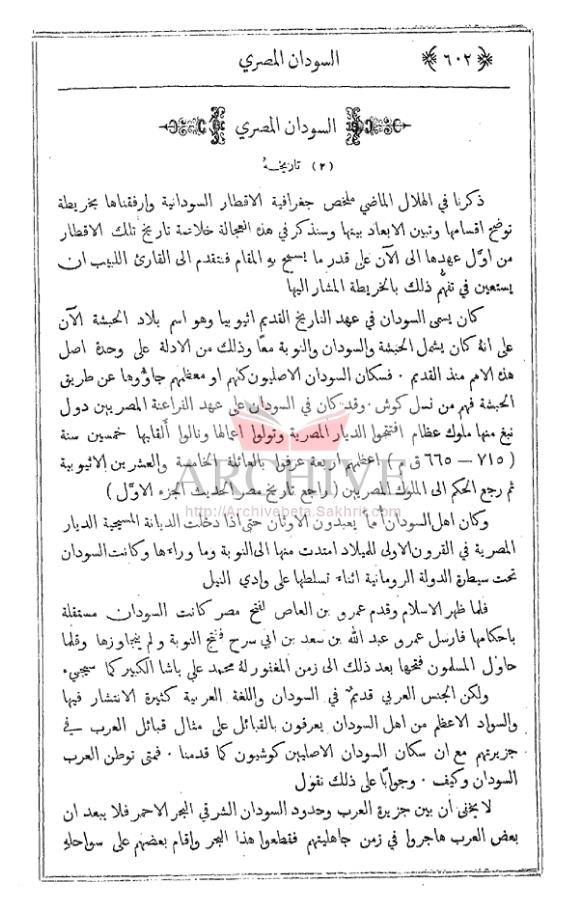 السودان المصري ﴿ ٦٠٢ ﴾
السودان المصري
(٢) تاريخهُ
ذكرنا في الهلال الماضي ملخص جغرافية الاقطار السودانية وارفقناها بخريطة
توضح اقسامها وتبين الابعاد بينها وسنذكر في هذه العجالة خلاصة تاريخ تلك الاقطار
من اوّل عهدها الى الآن على قدر ما يسمح بهِ المقام فنتقدم الى القارئ اللبيب ان
يستعين في تفهّم ذلك بالخريطة المشار اليها
كان يسمى السودان في عهد التاريخ القديم اثيوبيا وهو اسم بلاد الحبشة الآن
على انهُ كان يشمل الحبشة والسودان والنوبة معًا وذلك من الادلة على وحدة اصل
هذه الامم منذ القديم . فسكان السودان الاصليون كلهم او معظمهم جاؤوها عن طريق
الحبشة فهم من نسل كوش . وقد كان في السودان على عهد الفراعنة المصريين دول
نبغ منها ملوك عظام افتتحوا الديار المصرية وتولوا اعمالها ونالوا ألقابها خمسين سنة
( ٧١٥ — ٦٦٥ ق م ) اعظمهم اربعة عرفوا بالعائلة الخامسة والعشرين الاثيوبية
ثم رجع الحكم الى الملوك المصريين ( راجع تاريخ مصر الحديث الجزء الاوّل )
ARCHIVE
http://Archivebeta.Sakhrit.com
وكان اهل السودان أُممًا يعبدون الاوثان حتى اذا دخلت الديانة المسيحية الديار
المصرية في القرون الاولى للميلاد امتدت منها الى النوبة وما وراءها وكانت السودان
تحت سيطرة الدولة الرومانية اثناء تسلطها على وادي النيل
فلما ظهر الاسلام وقدم عمرو بن العاص لفتح مصر كانت السودان مستقلة
باحكامها فارسل عمرو عبد الله بن سعد بن ابي سرح ففتح النوبة ولم يتجاوزها وقلما
حاول المسلمون فتحها بعد ذلك الى زمن المغفور لهُ محمد علي باشا الكبير كما سيجيء
ولكن الجنس العربي قديمٌ في السودان واللغة العربية كثيرة الانتشار فيها
والسواد الاعظم من اهل السودان يعرفون بالقبائل على مثال قبائل العرب في
جزيرتهم مع ان سكان السودان الاصليين كوشيون كما قدمنا . فمتى توطن العرب
السودان وكيف . وجوابًا على ذلك نقول
لا يخفى ان بين جزيرة العرب وحدود السودان الشرقي البحر الاحمر فلا يبعد ان
بعض العرب هاجروا في زمن جاهليتهم فقطعوا هذا البحر واقام بعضهم على سواحلهِ